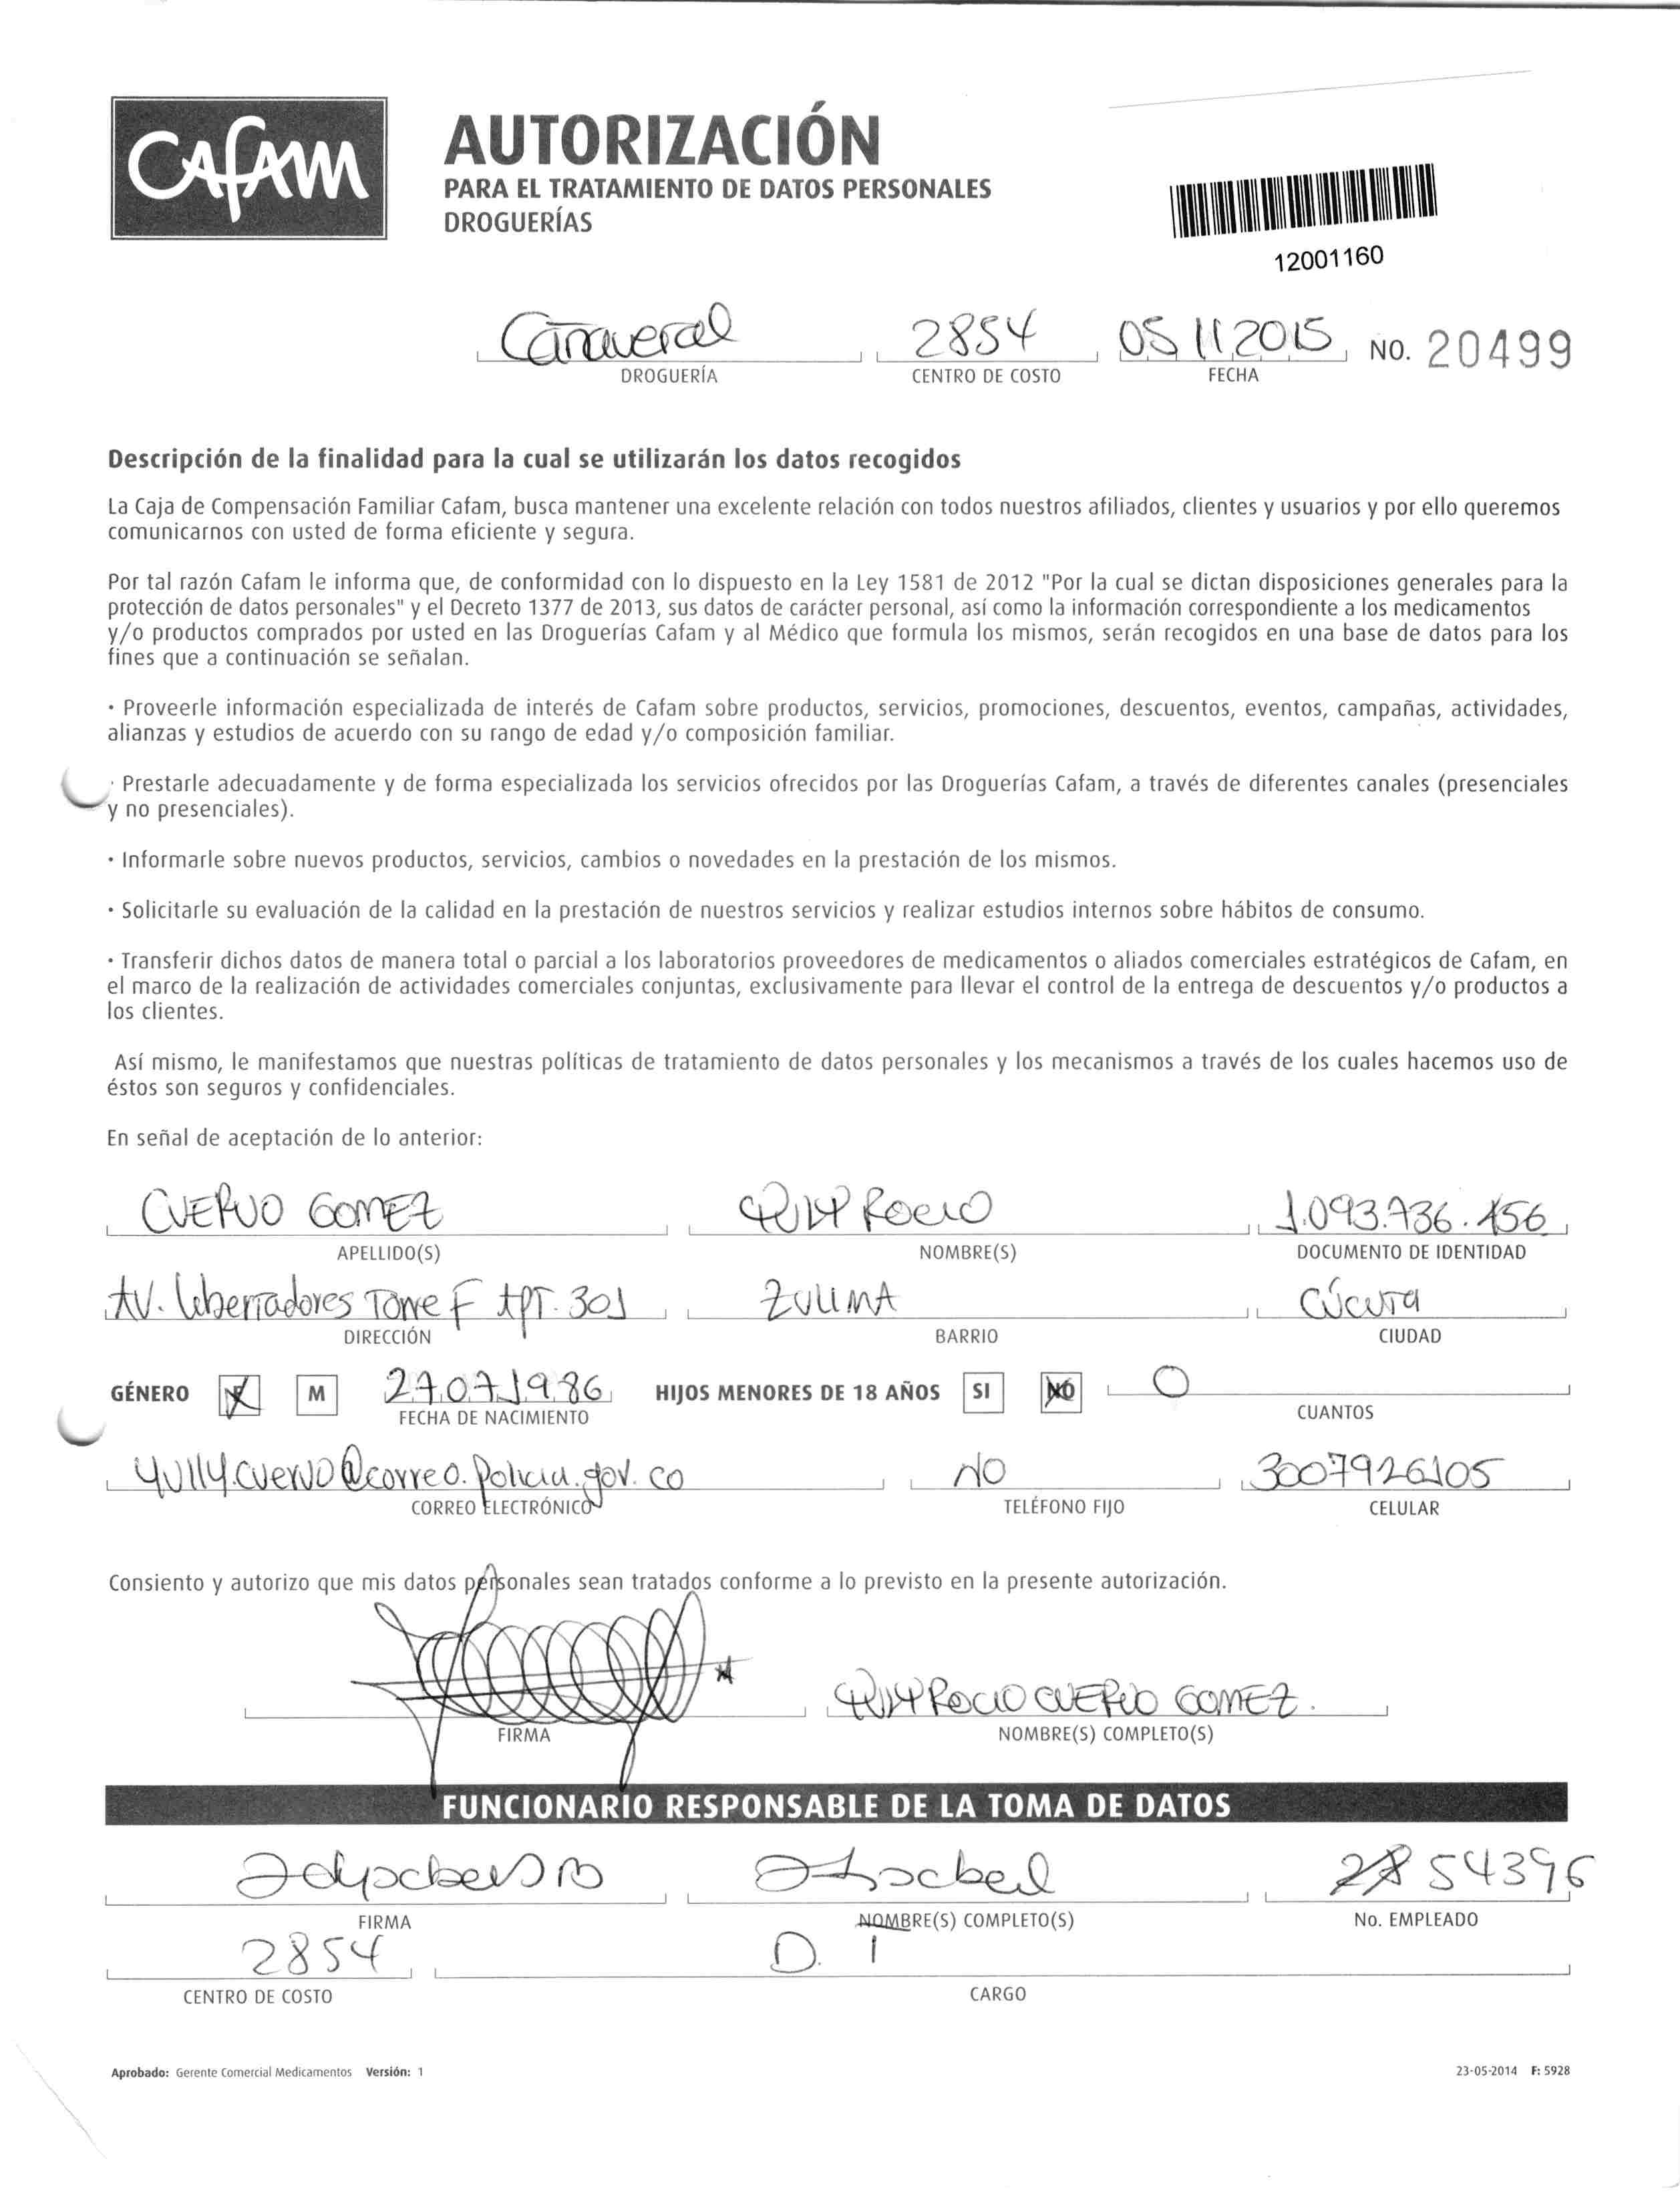 CAFAM
AUTORIZACIÓN
PARA EL TRATAMIENTO DE DATOS PERSONALES
DROGUERÍAS
12001160
Cañaveral 2854 05 11 2015 NO. 20499
DROGUERÍA CENTRO DE COSTO FECHA
Descripción de la finalidad para la cual se utilizarán los datos recogidos
La Caja de Compensación Familiar Cafam, busca mantener una excelente relación con todos nuestros afiliados, clientes y usuarios y por ello queremos
comunicarnos con usted de forma eficiente y segura.
Por tal razón Cafam le informa que, de conformidad con lo dispuesto en la Ley 1581 de 2012 "Por la cual se dictan disposiciones generales para la
protección de datos personales" y el Decreto 1377 de 2013, sus datos de carácter personal, así como la información correspondiente a los medicamentos
y/o productos comprados por usted en las Droguerías Cafam y al Médico que formula los mismos, serán recogidos en una base de datos para los
fines que a continuación se señalan.
· Proveerle información especializada de interés de Cafam sobre productos, servicios, promociones, descuentos, eventos, campañas, actividades,
alianzas y estudios de acuerdo con su rango de edad y/o composición familiar.
· Prestarle adecuadamente y de forma especializada los servicios ofrecidos por las Droguerías Cafam, a través de diferentes canales (presenciales
y no presenciales).
· Informarle sobre nuevos productos, servicios, cambios o novedades en la prestación de los mismos.
· Solicitarle su evaluación de la calidad en la prestación de nuestros servicios y realizar estudios internos sobre hábitos de consumo.
· Transferir dichos datos de manera total o parcial a los laboratorios proveedores de medicamentos o aliados comerciales estratégicos de Cafam, en
el marco de la realización de actividades comerciales conjuntas, exclusivamente para llevar el control de la entrega de descuentos y/o productos a
los clientes.
Así mismo, le manifestamos que nuestras políticas de tratamiento de datos personales y los mecanismos a través de los cuales hacemos uso de
éstos son seguros y confidenciales.
En señal de aceptación de lo anterior:
CUERVO GOMEZ YULLY ROCIO 1.093.736.456
APELLIDO(S) NOMBRE(S) DOCUMENTO DE IDENTIDAD
AV. Libertadores Torre F APT. 301 ZULIMA Cúcuta
DIRECCIÓN BARRIO CIUDAD
GÉNERO F M 27.07.1986 HIJOS MENORES DE 18 AÑOS SI NO 0
FECHA DE NACIMIENTO CUANTOS
yully.cuervo@correo.policia.gov.co NO 3007926105
CORREO ELECTRÓNICO TELÉFONO FIJO CELULAR
Consiento y autorizo que mis datos personales sean tratados conforme a lo previsto en la presente autorización.
YULLY ROCIO CUERVO GOMEZ.
FIRMA NOMBRE(S) COMPLETO(S)
FUNCIONARIO RESPONSABLE DE LA TOMA DE DATOS
54396
FIRMA NOMBRE(S) COMPLETO(S) No. EMPLEADO
2854 D. T
CENTRO DE COSTO CARGO
Aprobado: Gerente Comercial Medicamentos Versión: 1 23-05-2014 F: 5928